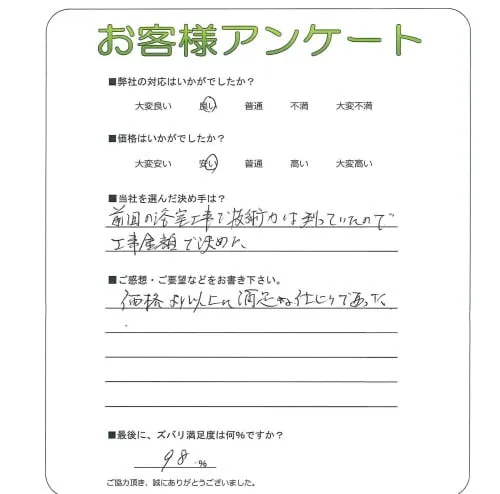 お客様アンケート
■弊社の対応はいかがでしたか？
大変良い 良い 普通 不満 大変不満
■価格はいかがでしたか？
大変安い 安い 普通 高い 大変高い
■当社を選んだ決め手は？
前回の浴室工事で技術力は判っていたので
工事金額で決めた
■ご感想・ご要望などをお書き下さい。
価格より以上に満足な仕上りであった
■最後に、ズバリ満足度は何％ですか？
98％
ご協力頂き、誠にありがとうございました。